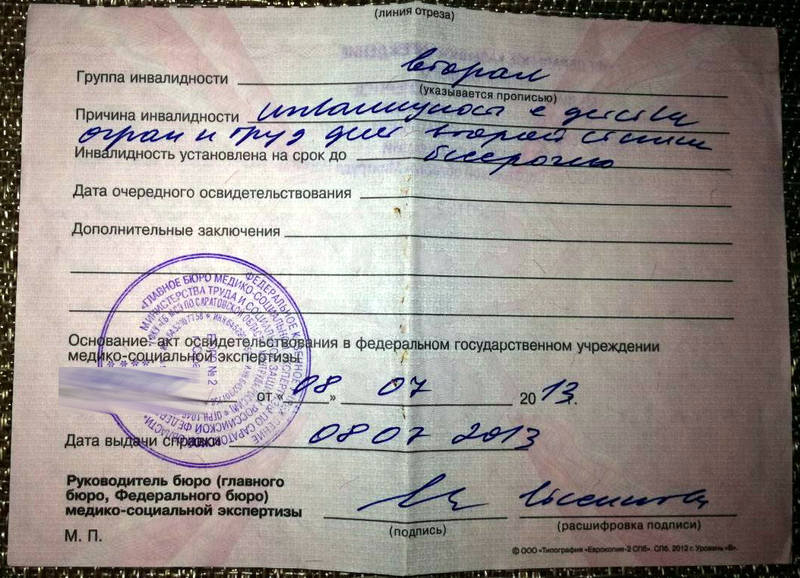 (линия отреза)
Группа инвалидности вторая
(указывается прописью)
Причина инвалидности инвалидность с детства
огран и труд деят второй степени
Инвалидность установлена на срок до бессрочно
Дата очередного освидетельствования
Дополнительные заключения
Основание: акт освидетельствования в федеральном государственном учреждении
медико-социальной экспертизы
от « 08 » 07 2013.
Дата выдачи справки 08 07 2013
Руководитель бюро (главного
бюро, Федерального бюро)
медико-социальной экспертизы
(подпись)
(расшифровка подписи)
М. П.
© ООО «Типография «Еврокопия-2 СПб». СПб. 2012 г. Уровень «В».
ФЕДЕРАЛЬНОЕ КАЗЕННОЕ УЧРЕЖДЕНИЕ
«ГЛАВНОЕ БЮРО МЕДИКО-СОЦИАЛЬНОЙ ЭКСПЕРТИЗЫ ПО САРАТОВСКОЙ ОБЛАСТИ»
МИНИСТЕРСТВА ТРУДА И СОЦИАЛЬНОЙ ЗАЩИТЫ РОССИЙСКОЙ ФЕДЕРАЦИИ
№ 2